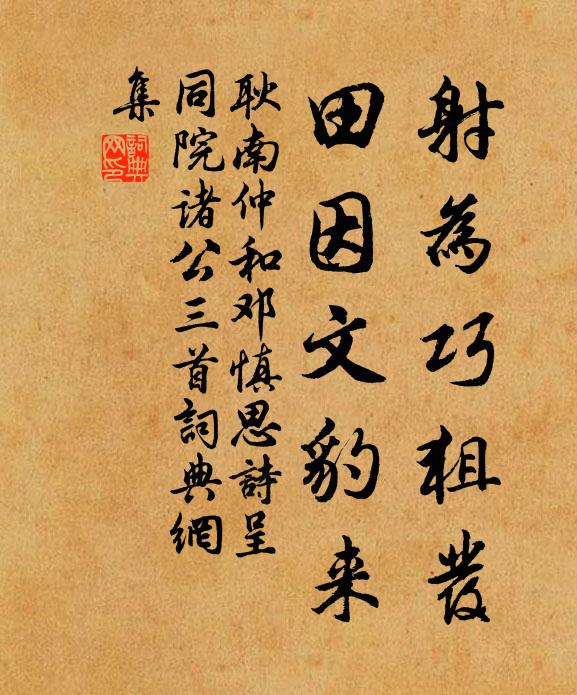 射為巧狙發
田因文豹来
耿南仲和邓慎思詩呈
同院诸公三首詞典網
集
詞典網印